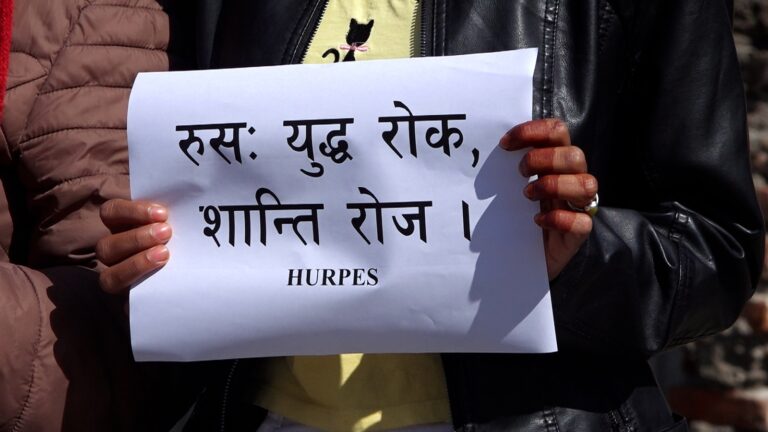 रुसः युद्ध रोक,
शान्ति रोज ।
HURPES